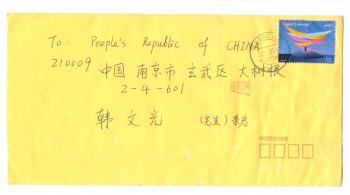 To: People's Republic of CHINA
210009
中国 南京市 玄武区 大树根
2-4-601
韩文光 (先生) 亲启
POSTCODE